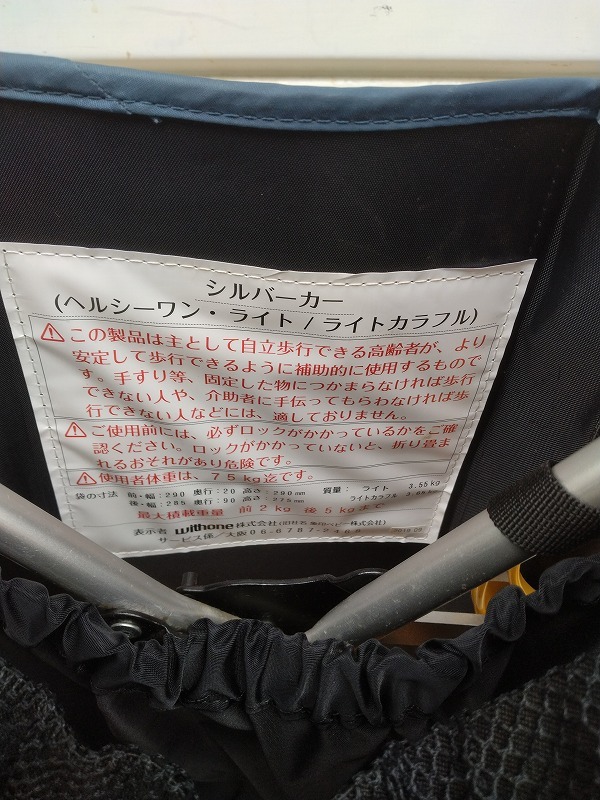 シルバーカー
(ヘルシーワン・ライト / ライトカラフル)
⚠この製品は主として自立歩行できる高齢者が、より
安定して歩行できるように補助的に使用するもので
す。手すり等、固定した物につかまらなければ歩行
できない人や、介助者に手伝ってもらわなければ歩
行できない人などには、適しておりません。
⚠ご使用前には、必ずロックがかかっているかをご確
認ください。ロックがかかっていないと、折り畳ま
れるおそれがあり危険です。
⚠使用者体重は、75kg迄です。
袋の寸法 前・幅:290 奥行:20 高さ:290mm 質量: ライト 3.55kg
後・幅:285 奥行:90 高さ:275mm ライトカラフル
最大積載重量 前2kg 後5kgまで
表示者 withone 株式会社(旧社名 象印ベビー株式会社)
サービス係/大阪 06-6787-